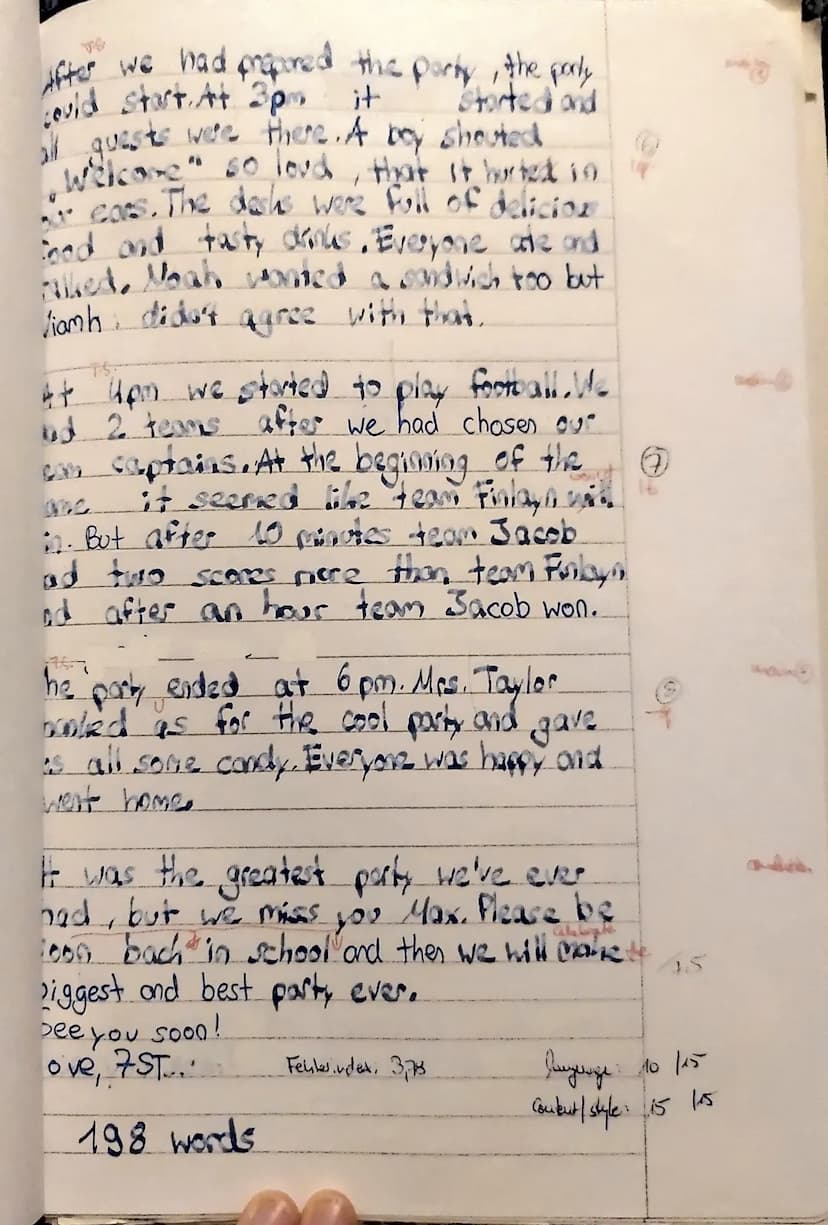 T.S.
After we had prepared the party, the party
could start. At 3pm it started and
all guests were there. A boy shouted
„Welcome" so loud, that it hurted in
our ears. The desks were full of delicious
food and tasty drinks. Everyone ate and
talked. Noah wanted a sandwich too but
Niamh didn't agree with that.
T.S.
At 4pm we started to play football. We
had 2 teams after we had chosen our
team captains. At the beginning of the
game it seemed like team Finlayn will
in. But after 10 minutes team Jacob
ad two scores more than team Finlayn
nd after an hour team Jacob won.
7
T.S.
he party ended at 6 pm. Mrs. Taylor
anked as for the cool party and gave
us all some candy. Everyone was happy and
went home.
It was the greatest party we've ever
had, but we miss you Max. Please be
soon back in school and then we will make
celebrate the
biggest and best party ever.
See you soon!
ove, 7ST...
Fehlerindex: 3,78
Language: 10 /15
Content/style: 15 /15
198 words